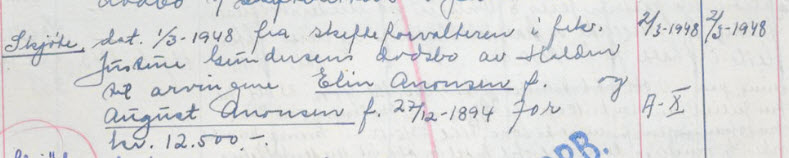 Skjøte, dat. 1/3-1948 fra skifteforvalteren i frkr. 2/3-1948 2/3-1948
Justine Gundersens dødsbo av Halden
til arvingene Elin Aronsen f. og
August Aronsen f. 27/12-1894 for A-X
kr. 12.500.-
ORB.